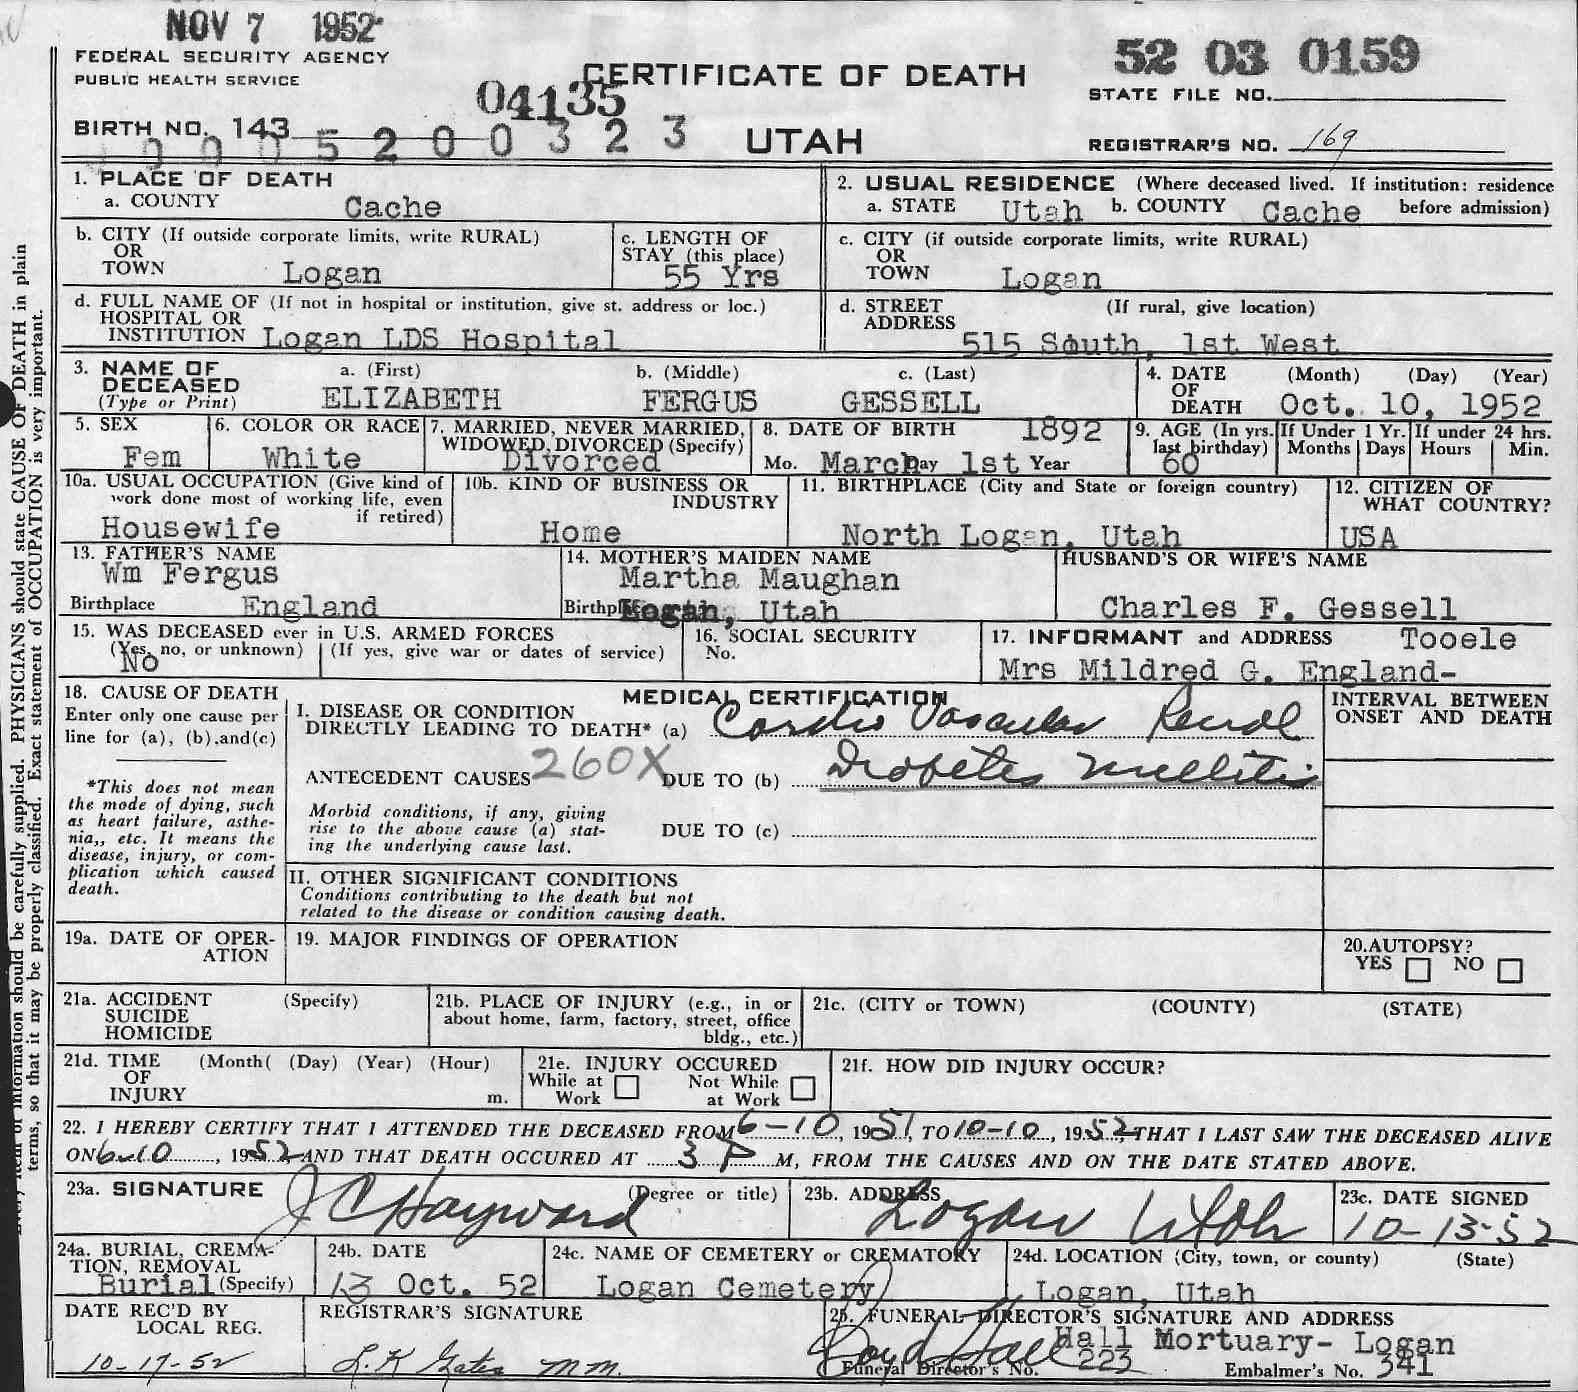 NOV 7 1952
FEDERAL SECURITY AGENCY
PUBLIC HEALTH SERVICE
CERTIFICATE OF DEATH
52 03 0159
STATE FILE NO.
04135
BIRTH NO. 143
0 0 0 5 2 0 0 3 2 3
UTAH
REGISTRAR'S NO. 169
1. PLACE OF DEATH
a. COUNTY Cache
2. USUAL RESIDENCE (Where deceased lived. If institution: residence
a. STATE Utah b. COUNTY Cache before admission)
b. CITY (If outside corporate limits, write RURAL)
OR
TOWN Logan
c. LENGTH OF
STAY (this place)
55 Yrs
c. CITY (if outside corporate limits, write RURAL)
OR
TOWN Logan
d. FULL NAME OF (If not in hospital or institution, give st. address or loc.)
HOSPITAL OR
INSTITUTION Logan LDS Hospital
d. STREET (If rural, give location)
ADDRESS
515 South, 1st West
3. NAME OF DECEASED
(Type or Print)
a. (First) b. (Middle) c. (Last)
ELIZABETH FERGUS GESSELL
4. DATE OF DEATH (Month) (Day) (Year)
Oct. 10, 1952
5. SEX
Fem
6. COLOR OR RACE
White
7. MARRIED, NEVER MARRIED,
WIDOWED, DIVORCED (Specify)
Divorced
8. DATE OF BIRTH 1892
Mo. March Day 1st Year
9. AGE (In yrs. last birthday)
60
If Under 1 Yr.
Months Days
If under 24 hrs.
Hours Min.
10a. USUAL OCCUPATION (Give kind of
work done most of working life, even
if retired)
Housewife
10b. KIND OF BUSINESS OR
INDUSTRY
Home
11. BIRTHPLACE (City and State or foreign country)
North Logan, Utah
12. CITIZEN OF
WHAT COUNTRY?
USA
13. FATHER'S NAME
Wm Fergus
Birthplace England
14. MOTHER'S MAIDEN NAME
Martha Maughan
Birthplace Logan, Utah
HUSBAND'S OR WIFE'S NAME
Charles F. Gessell
15. WAS DECEASED ever in U.S. ARMED FORCES
(Yes, no, or unknown) (If yes, give war or dates of service)
No
16. SOCIAL SECURITY
No.
17. INFORMANT and ADDRESS Tooele
Mrs Mildred G. England-
18. CAUSE OF DEATH
Enter only one cause per
line for (a), (b), and (c)
*This does not mean
the mode of dying, such
as heart failure, asthe-
nia,, etc. It means the
disease, injury, or com-
plication which caused
death.
MEDICAL CERTIFICATION
I. DISEASE OR CONDITION
DIRECTLY LEADING TO DEATH* (a) Cardio Vascular Renal
ANTECEDENT CAUSES 260X DUE TO (b) Diabetes Mellitis
Morbid conditions, if any, giving
rise to the above cause (a) stat-
ing the underlying cause last.
DUE TO (c)
INTERVAL BETWEEN
ONSET AND DEATH
II. OTHER SIGNIFICANT CONDITIONS
Conditions contributing to the death but not
related to the disease or condition causing death.
19a. DATE OF OPER-
ATION
19. MAJOR FINDINGS OF OPERATION
20. AUTOPSY?
YES NO
21a. ACCIDENT (Specify)
SUICIDE
HOMICIDE
21b. PLACE OF INJURY (e.g., in or
about home, farm, factory, street, office
bldg., etc.)
21c. (CITY or TOWN) (COUNTY) (STATE)
21d. TIME (Month( (Day) (Year) (Hour)
OF
INJURY m.
21e. INJURY OCCURED
While at Work Not While at Work
21f. HOW DID INJURY OCCUR?
22. I HEREBY CERTIFY THAT I ATTENDED THE DECEASED FROM 6-10, 1951, TO 10-10, 1952 THAT I LAST SAW THE DECEASED ALIVE
ON 6-10, 1952, AND THAT DEATH OCCURED AT 3 P M, FROM THE CAUSES AND ON THE DATE STATED ABOVE.
23a. SIGNATURE (Degree or title)
J C Hayward
23b. ADDRESS
Logan Utah
23c. DATE SIGNED
10-13-52
24a. BURIAL, CREMA-
TION, REMOVAL
Burial (Specify)
24b. DATE
13 Oct. 52
24c. NAME OF CEMETERY or CREMATORY
Logan Cemetery
24d. LOCATION (City, town, or county) (State)
Logan, Utah
DATE REC'D BY
LOCAL REG.
10-17-52
REGISTRAR'S SIGNATURE
L.K Gates M M.
25. FUNERAL DIRECTOR'S SIGNATURE AND ADDRESS
Boyd Hall Hall Mortuary- Logan
Funeral Director's No. 223 Embalmer's No. 341
Every item of information should be carefully supplied. PHYSICIANS should state CAUSE OF DEATH in plain
terms, so that it may be properly classified. Exact statement of OCCUPATION is very important.